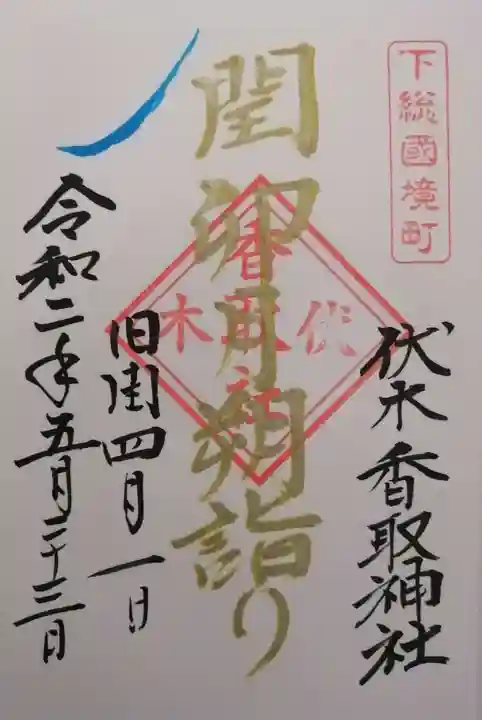 下総國境町
伏木香取神社
閏卯月朔詣り
香取社
伏木
旧閏四月一日
令和二年五月二十三日